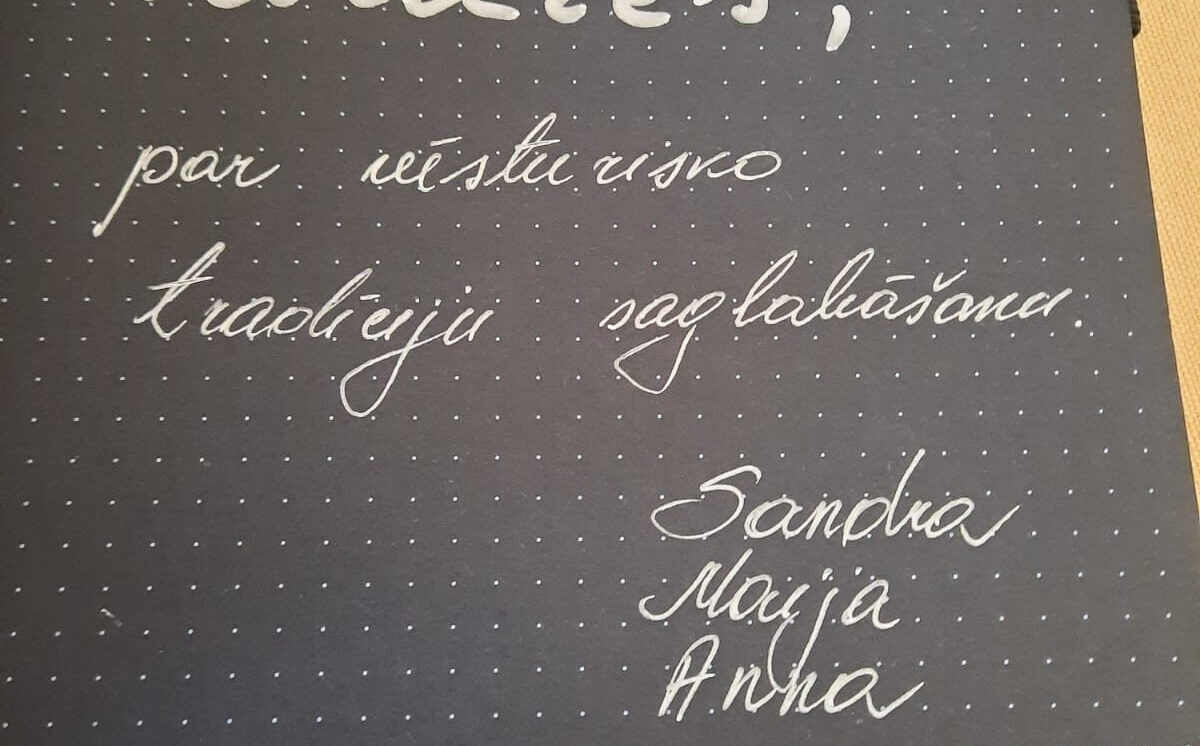 par vēsturisko
tradīciju saglabāšanu.
Sandra
Maija
Anna